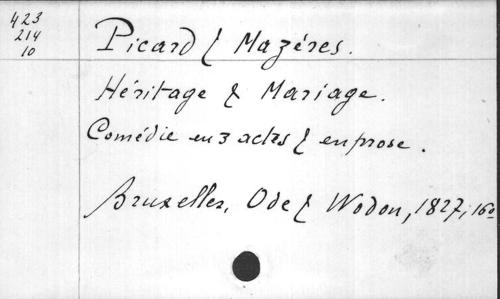 423
214
10
Picard & Mazéres.
Héritage & Mariage.
Comédie en 3 actes & en prose.
Bruxelles, Ode & Wodon, 1827, 16o